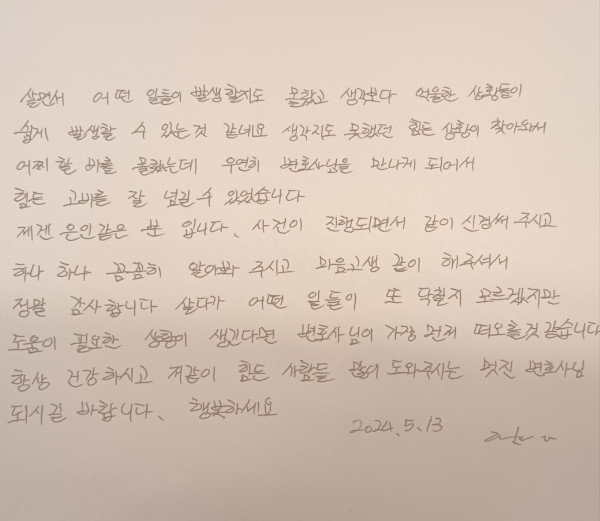 살면서 어떤 일들이 발생할지도 몰랐고 생각보다 억울한 상황들이
쉽게 발생할 수 있는것 같네요 생각지도 못했던 힘든 상황이 찾아와서
어찌 할 바를 몰랐는데 우연히 변호사님을 만나게 되어서
힘든 고비를 잘 넘길 수 있었습니다
제겐 은인같은 분 입니다. 사건이 진행되면서 같이 신경써 주시고
하나 하나 꼼꼼히 알아봐 주시고 마음고생 같이 해주셔서
정말 감사합니다 살다가 어떤 일들이 또 닥칠지 모르겠지만
도움이 필요한 상황이 생긴다면 변호사님이 가장 먼저 떠오를것 같습니다
항상 건강하시고 저같이 힘든 사람들 많이 도와주시는 멋진 변호사님
되시길 바랍니다. 행복하세요
2024.5.13